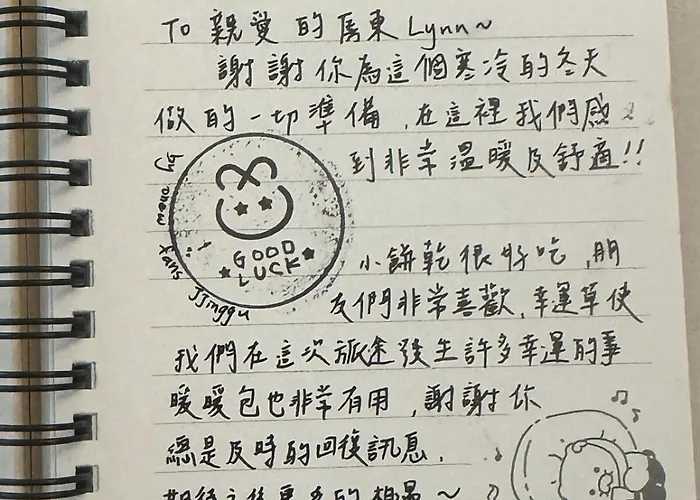 To 親愛的房東 Lynn~
謝謝你為這個寒冷的冬天
做的一切準備,在這裡我們感
到非常溫暖及舒適!!
by onew fans jjinggu
GOOD
LUCK
小餅乾很好吃,朋
友們非常喜歡,幸運草使
我們在這次旅途發生許多幸運的事
暖暖包也非常有用,謝謝你
總是及時的回復訊息.
期待之後更多的相遇~